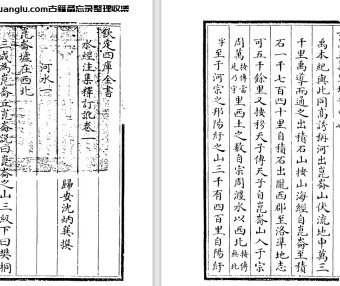 uanglu.com古籍备忘录整理收集
欽定四庫全書
水經注集釋訂訛卷一
歸安沈炳巽撰
河水一
崑崙墟在西北
三成為崑崙丘崑崙說曰崑崙之山三級下曰樊桐
禹本紀與此同高誘稱河出崑崙山伏流地中萬三
千里禹導而通之出積石山按山海經自崑崙至積
石一千七百四十里自積石出隴西郡至洛準地志
可五千餘里又按穆天子傳天子自崑崙山入于宗
周萬里西土之數自宗周瀍水以西北
字至于河宗之邦陽紆之山三千有四百里自陽紆